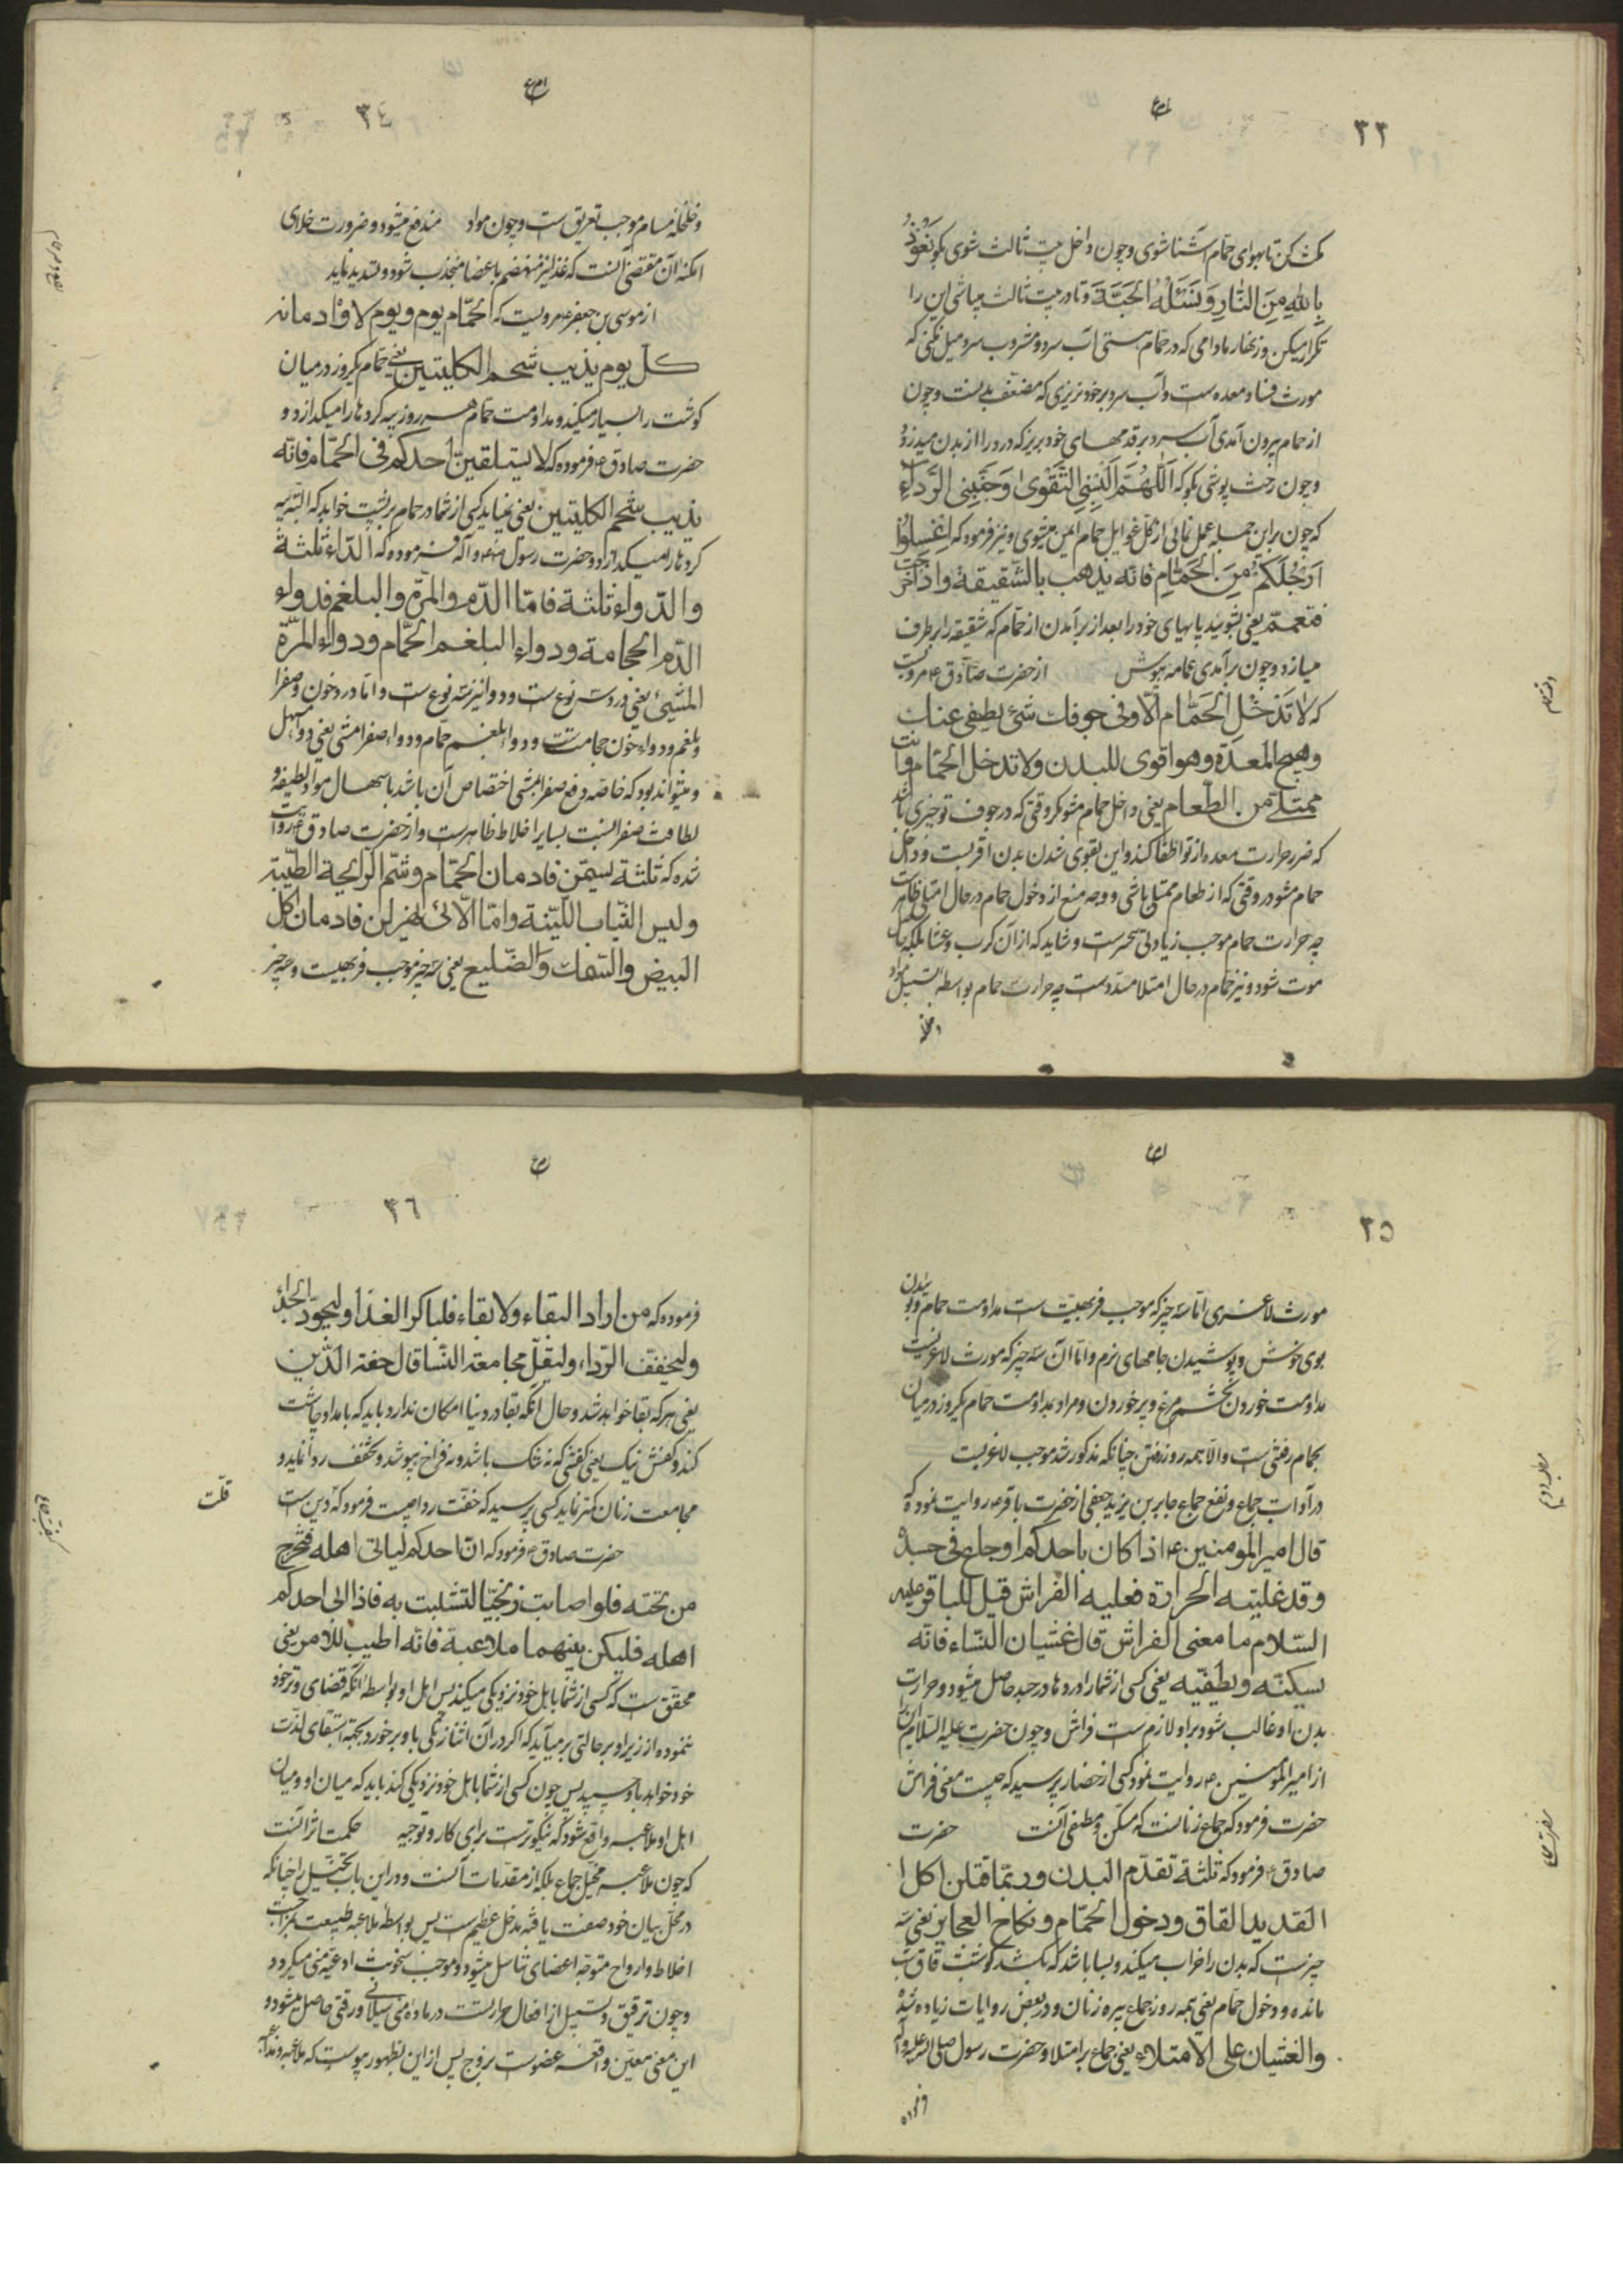 ۳۳
مکث کن تا بهوای حمام آشنا شوی و چون داخل بیت ثالث شوی بگو نَعُوذُ
بِاللهِ مِنَ النَّارِ وَنَسْئَلُهُ الْجَنَّةَ و تا در بیت ثالث میباشی این را
تکرار میکن و زنهار مادامی که در حمام هستی آب سرد و مشروب سرد میل نکنی که
مورث فساد معده است و آب سرد بر خود نریزی که مضعف بدنست و چون
از حمام بیرون آمدی آب سرد بر قدمهای خود بریز که درد را از بدن میبرد و
و چون رخت پوشی بگو که اَللّٰهُمَّ اَلْبِسْنِی التَّقْوٰی وَجَنِّبْنِی الرَّدٰی
که چون بر این جمله عمل نمائی از کل غوایل حمام ایمن میشوی و نیز فرمود که اِغْسِلُوا
اَرْجُلَکُمْ مِنَ الْحَمَّامِ فانّه یذهب بالشّقیقة واذا خرجت
فتعمّم یعنی بشوئید پاهای خود را بعد از برآمدن از حمام که شقیقه را برطرف
میسازد و چون برآمدی عمامه بپوش از حضرت صادق ع مرویست
که لا تَدْخُلِ الْحَمَّام الّا وفی جوفك شئ یطفی عنك
وهیج المعدة وهو اقوی للبدن ولا تدخل الحمّام وانت
ممتلئ من الطّعام یعنی داخل حمام مشو مگر وقتی که در جوف تو چیزی باشد
که ضرر حرارت معده از تو اطفا کند و این بقوی شدن بدن اقربست و داخل
حمام مشو در وقتی که از طعام ممتلی باشی و وجه منع از دخول حمام در حال امتلا ظاهرست
چه حرارت حمام موجب زیادتی بخرست و شاید که از آن کرب و غشا بلکه حال
موت شود و نیز حمام در حال امتلا مسدّدست چه حرارت حمام بواسطه تسییل مواد
۳٤
و خلخله مسام موجب تعریق است و چون مواد مندفع میشود و ضرورت خلای
امکنه آن مقتضی آنست که غذا نیز منهضم باعضا منجذب شود و تسدید نماید
از موسی بن جعفر ع مرویست که الحمّام یوم ویوم لا وادمانه
کلّ یوم یذیب شحم الکلیتین یعنی حمام یکروز در میان
گوشت را بسیار میکند و مداومت حمام هر روز پیه گرده‌ها را میگدازد و
حضرت صادق ع فرموده که لا یستلقینّ احدکم فی الحمّام فانّه
یذیب شحم الکلیتین یعنی نباید کسی از شما در حمام بر پشت خوابد که البته پیه
گرده‌ها را میگدازد و حضرت رسول ص و آله فرموده که الدّاء ثلثة
والدّواء ثلثة فامّا الدّاء فالدّم والمرّة والبلغم فدواء
الدّم الحجامة ودواء البلغم الحمّام ودواء المرّة
المشیّ یعنی درد سه نوع ست و دوا نیز سه نوع ست و امّا درد خون و صفرا
و بلغم و دواء خون حجامت ست و دواء بلغم حمام و دواء صفرا مشی یعنی دواء مسهل
و میتواند بود که خاصه دفع صفرا بمشی اختصاص آن باشد باسهال مواد لطیفه و
لطافت صفرا نسبت بسایر اخلاط ظاهرست و از حضرت صادق ع روایت
شده که ثلثة یسمّن فادمان الحمّام وشمّ الرّائحة الطّیّبة
ولبس الثّیاب اللّیّنة وامّا الّاتی یهزلن فادمان اکل
البیض والسّمك والضّلیع یعنی سه چیز موجب فربهیست و سه چیز
۳۵
مورث لاغری امّا سه چیز که موجب فربهیست مداومت حمام و بوئیدن
بوی خوش و پوشیدن جامهای نرم و امّا آن سه چیز که مورث لاغریست
مداومت خوردن تخم مرغ و پر خوردن و مراد بمداومت حمام یکروز در میان
بحمام رفتن ست و الّا همه روز رفتن چنانکه مذکور شد موجب لاغریست
در آداب جماع و نفع جماع جابر بن یزید جعفی از حضرت باقر ع روایت نموده که
قال امیر المومنین ع اذا کان باحدکم اوجاع فی جسده
وقد غلبته الحرارة فعلیه الفراش قیل للباقر علیه
السّلام ما معنی الفراش قال غشیان النّساء فانّه
یسکنه ویطفیه یعنی کسی از شما را دردها در جسد حاصل میشود و حرارت
بدن او غالب شود بر او لازم ست فراش و چون حضرت علیه السلام این را
از امیر المومنین ع روایت نمود کسی از حضار پرسید که چیست معنی فراش
حضرت فرمود که جماع زنانست که مسکّن و مطفی آنست حضرت
صادق ع فرمود که ثلثة تهدم البدن وربّما قتلن اکل
القدید القاق ودخول الحمّام ونکاح العجایز یعنی سه
چیزست که بدن را خراب میکند و بسا باشد که بکشد گوشت قاق شب
مانده و دخول حمام یعنی همه روز جماع پیره زنان و در بعض روایات زیاده شده
والغشیان علی الامتلاء یعنی جماع بر امتلا و حضرت رسول صلی الله علیه وآله
فرموده
۳٦
فرموده که من اراد البقاء ولا بقاء فلیباکر الغذا ولیجوّد الحذاء
ولیخفّف الرّداء ولیقلّ مجامعة النّسا قال خفة الدّین
یعنی هر که بقا خواهد شد و حال آنکه بقا در دنیا امکان ندارد باید که بامداد چاشت
کند و کفش نیک یعنی کفشی که نه تنگ باشد و نه فراخ بپوشد و تخفف ردا نماید و
مجامعت زنان کمتر نماید کسی پرسید که خفّت ردا چیست فرمود که دین ست
قلّت
حضرت صادق ع فرمود که انّ احدکم لیاتی اهله فتخرج
من تحته فلو اصابت زنجیّا لتشبثت به فاذا اتی احدکم
اهله فلیکن بینهما ملاعبة فانّه اطیب للامر یعنی
محقّق ست که کسی از شما باهل خود نزدیکی میکند پس اهل او بواسطه آنکه قضای وتر خود
ننموده از زیر او بر حالتی بر میآید که اگر در آن اثنا زنگی با و بر خورد بجهة استبقای لذّت
خود خواهد باو چسپید پس چون کسی از شما باهل خود نزدیکی کند باید که میان او و میان
اهل او ملاعبه واقع شود که نیکوترست برای کار و توجیه حکمت اثر آنست
که چون ملاعبه مخیّل جماع بلکه از مقدمات آنست و در این باب تخییل را چنانکه
در محل بیان خود صفت یافته مدخل عظیم ست پس بواسطه ملاعبه طبیعت
اخلاط و ارواح متوجه اعضای تناسل میشود و موجب سخونت اوعیه منی میگردد
و چون ترقیق و تسییل از افعال حرارتست در ماده منی سیلانی و رقتی حاصل میشود و
این معنی معیّن واقعه عضوست بزوج پس از این بظهور پیوست که ملاعبه